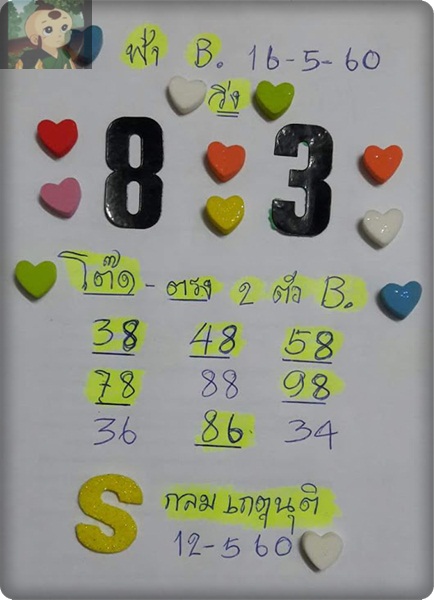 ฟ้า B. 16-5-60
วิ่ง
8 3
โต๊ด - ตรง 2 ตัว B.
38 48 58
78 88 98
36 86 34
S กลม เกตุนุติ
12-5 60